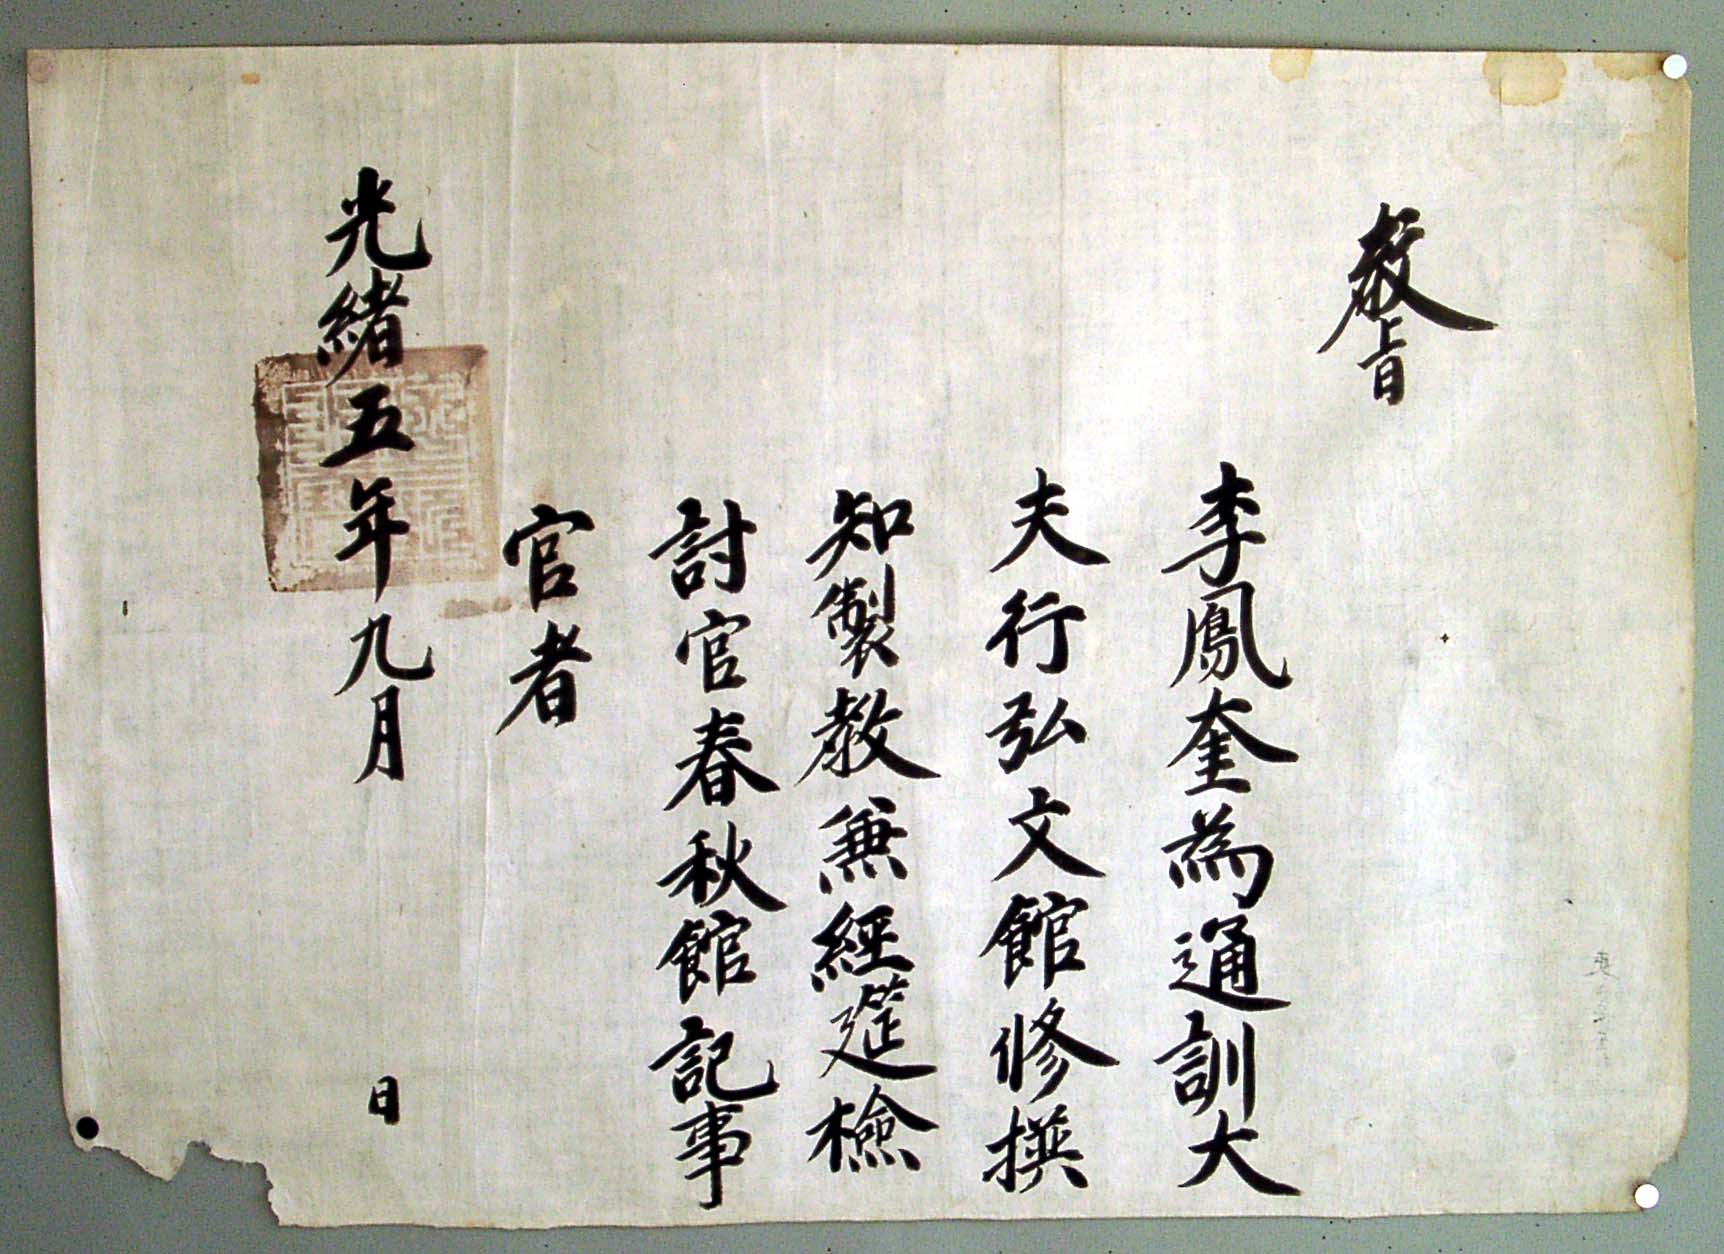 教旨
李鳳奎為通訓大
夫行弘文館修撰
知製教兼經筵檢
討官春秋館記事
官者
光緒五年九月 日